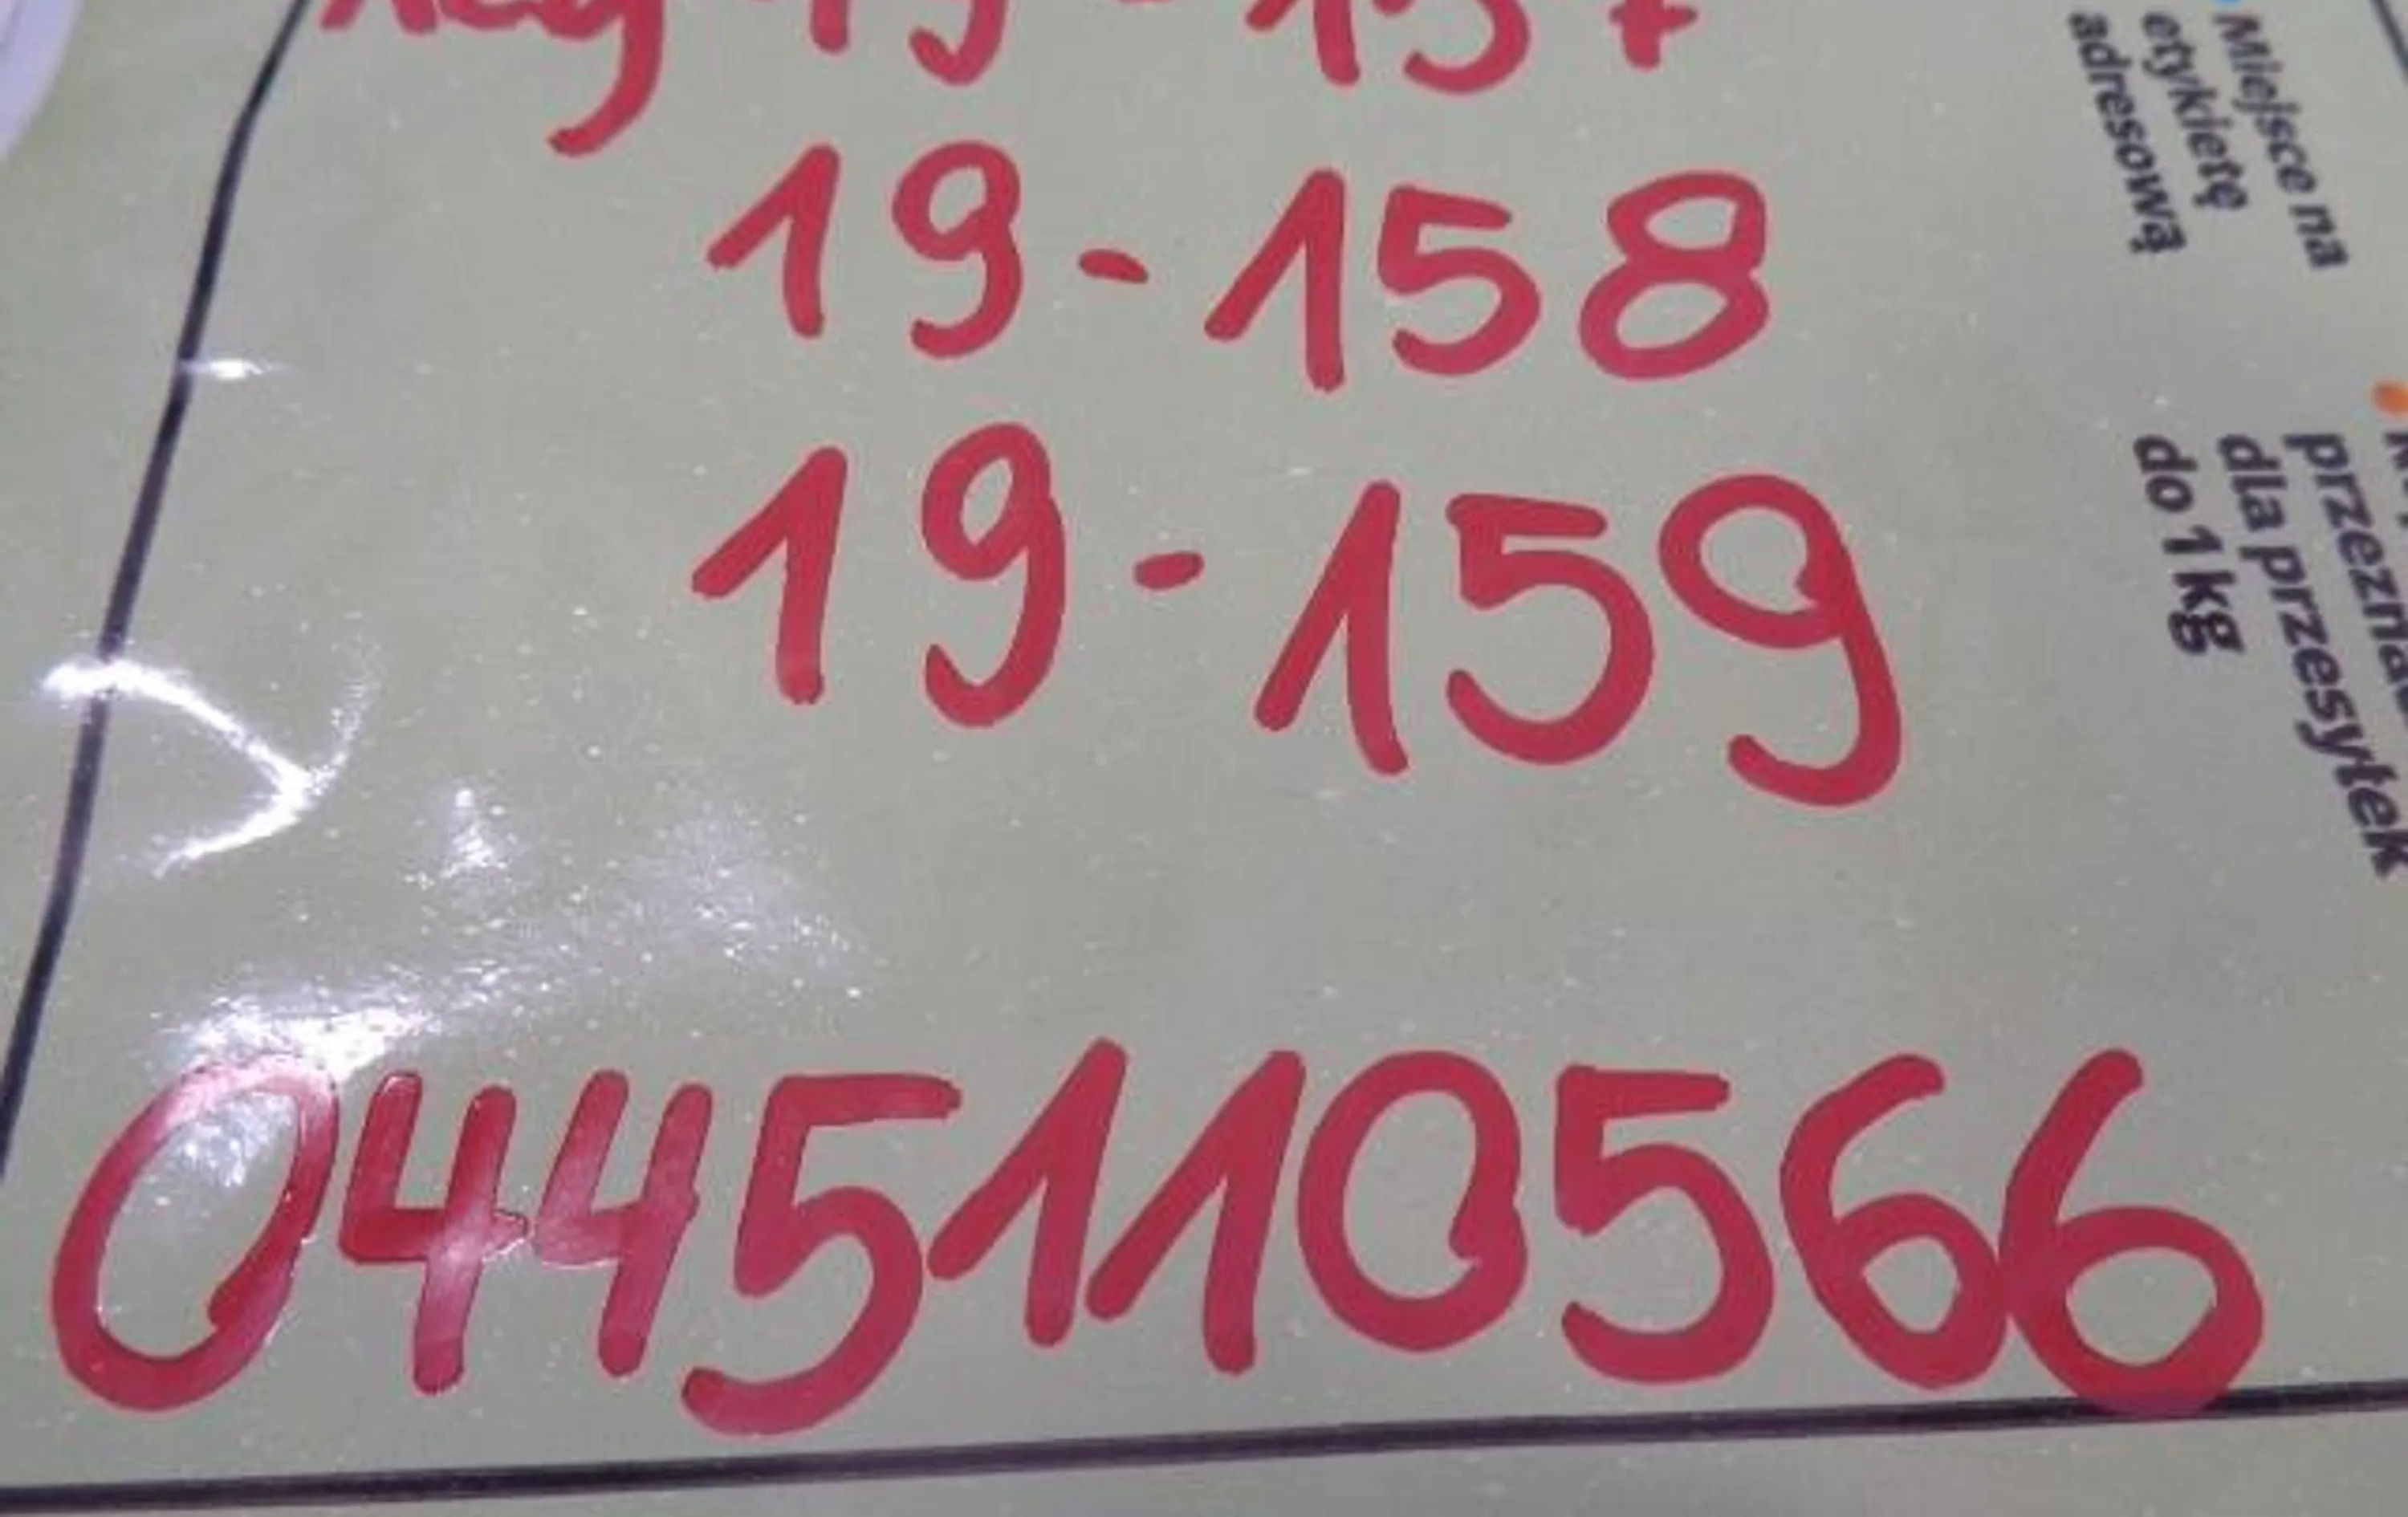 19-157
19-158
19-159
04451110566
Miejsce na
etykietę
adresową
dla przesyłek
do 1 kg